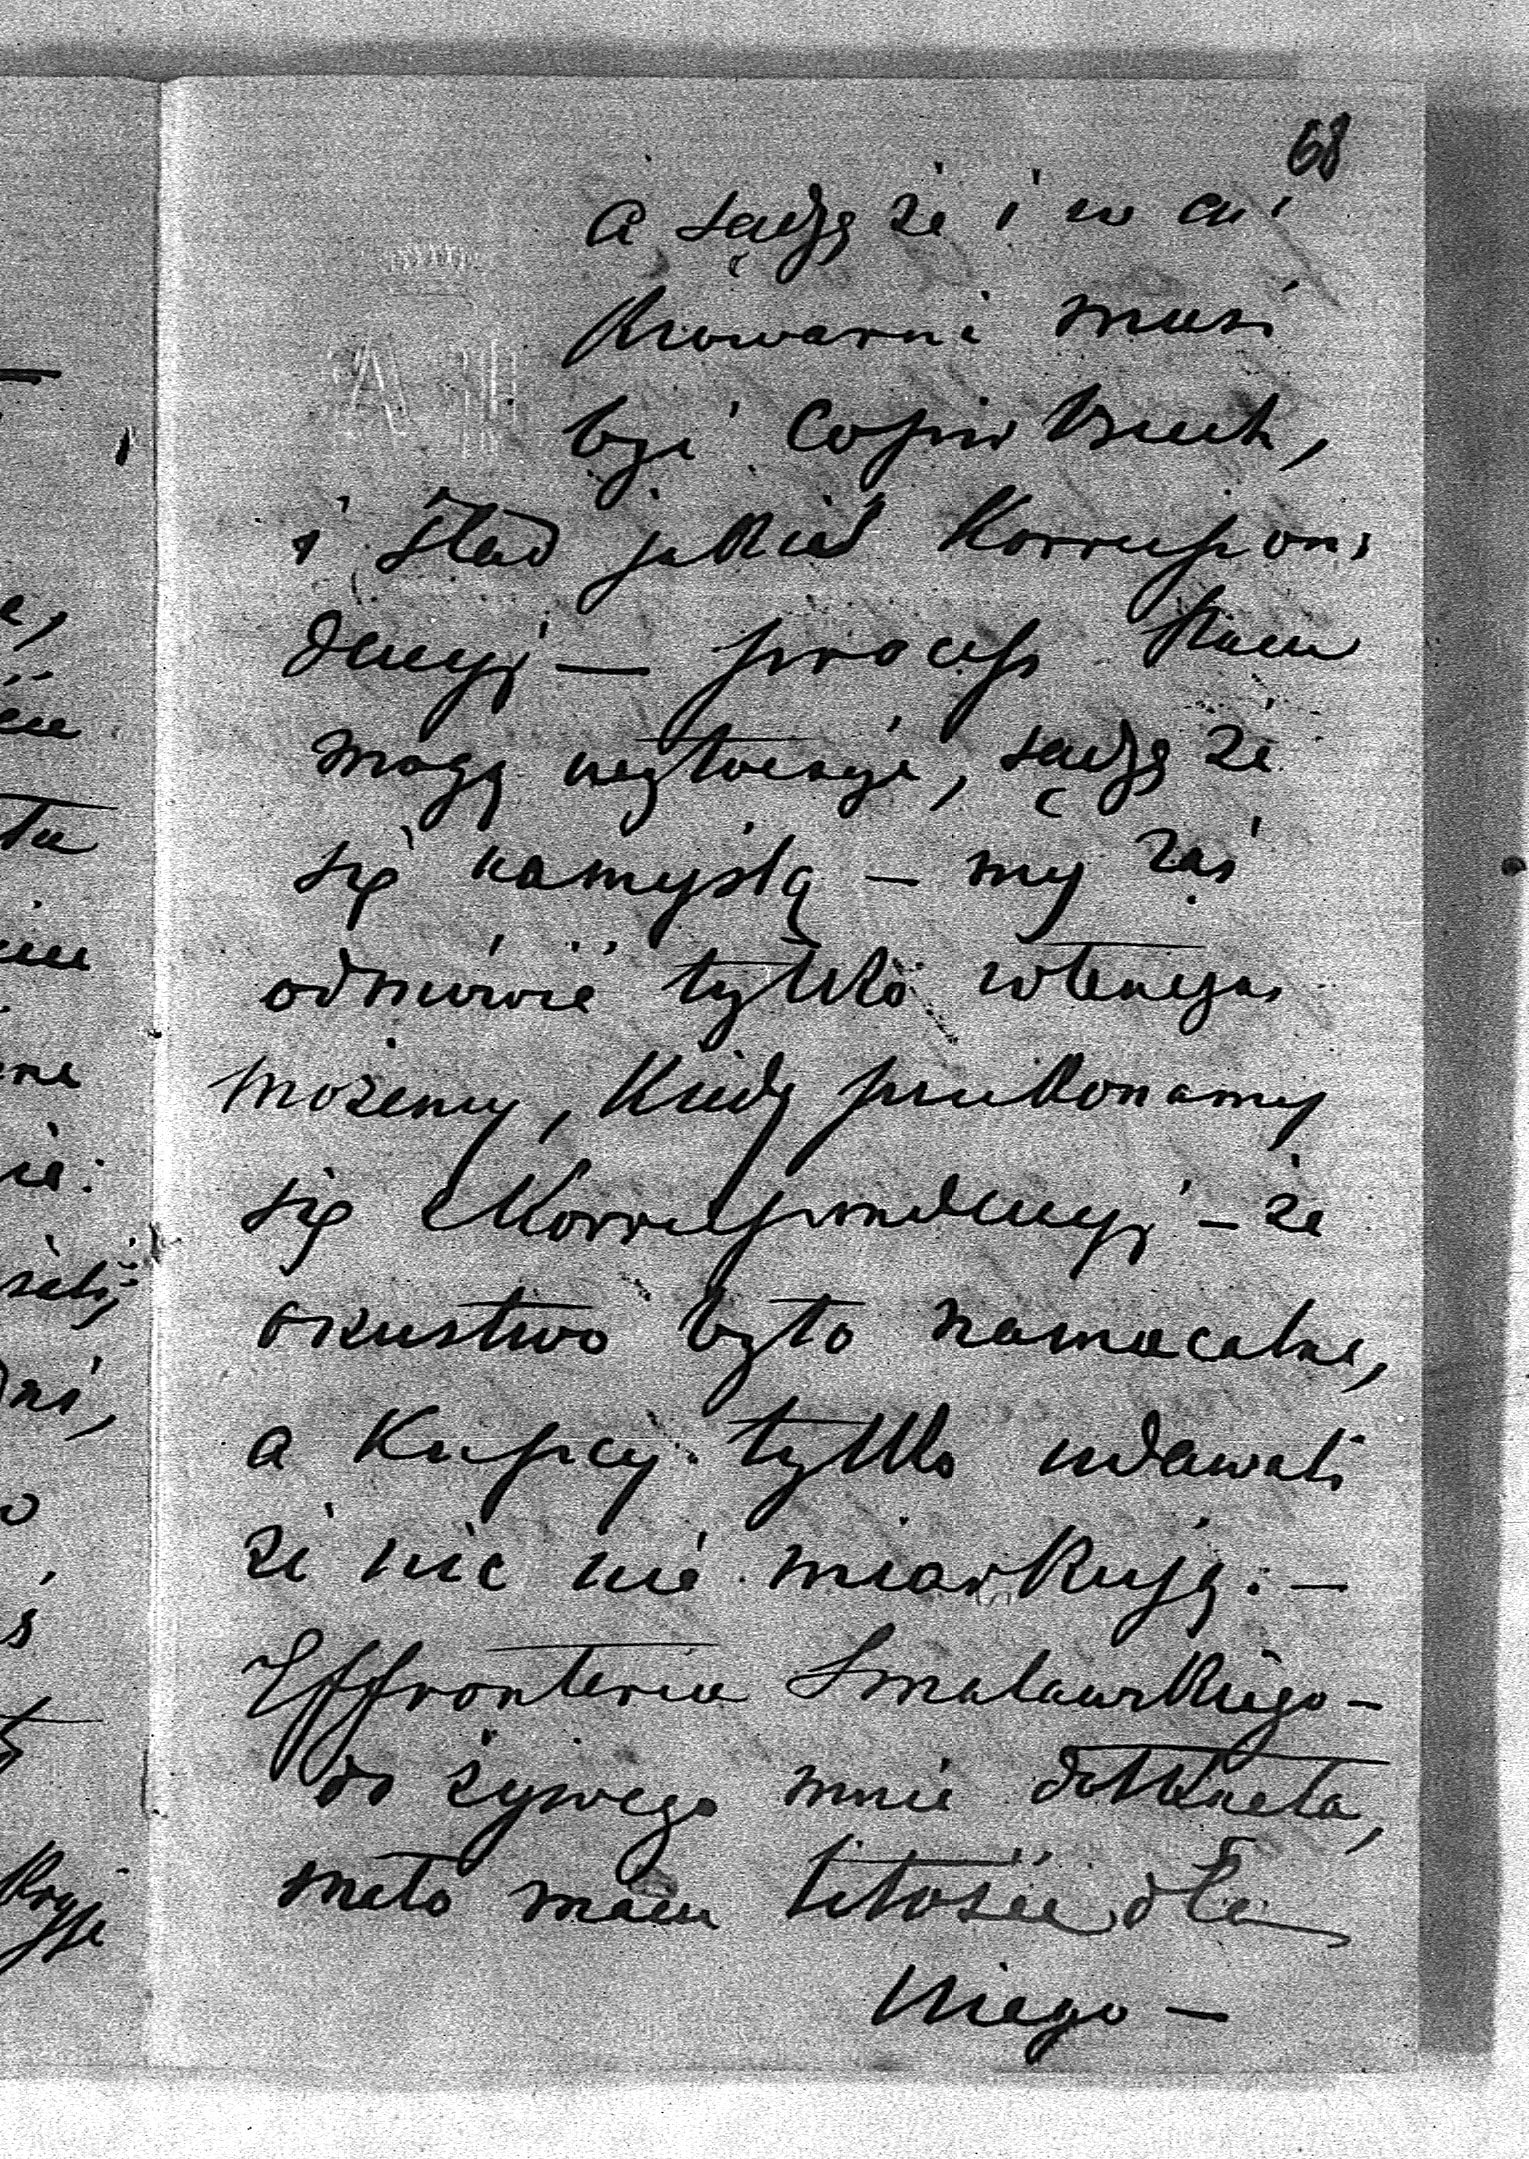 68
a sądzę że i w cu
krowarni musi
być Copier Buch,
i ślad jakiś Korrespon,
dencyj — process sam
mogą wytoczyć, sądzę że
się namyślą — my zaś
odmówić tylko wtenczas
możemy, kiedy przekonamy
się z Korrespondencyj — że
oszustwo było namacalne,
a Kupcy tylko udawali
że nic nie miarkują. —
Effronteria Smaławskiego —
do żywego mnie dotknęła,
mało mam litości dla
niego —